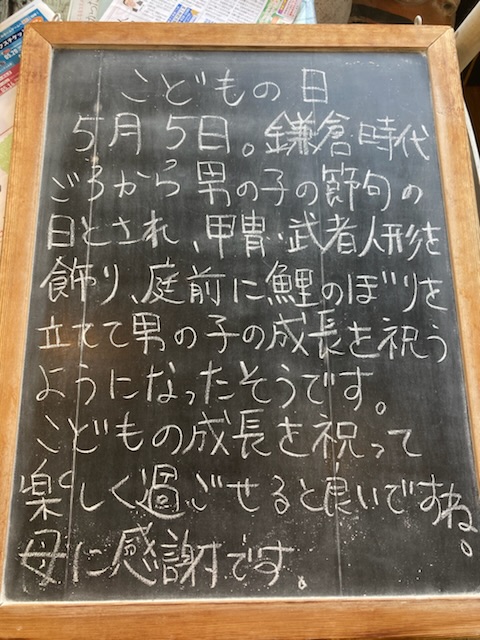 こどもの日
5月5日。鎌倉時代
ごろから男の子の節句の
日とされ、甲冑・武者人形を
飾り、庭前に鯉のぼりを
立てて男の子の成長を祝う
ようになったそうです。
こどもの成長を祝って
楽しく過ごせると良いですね。
母に感謝です。